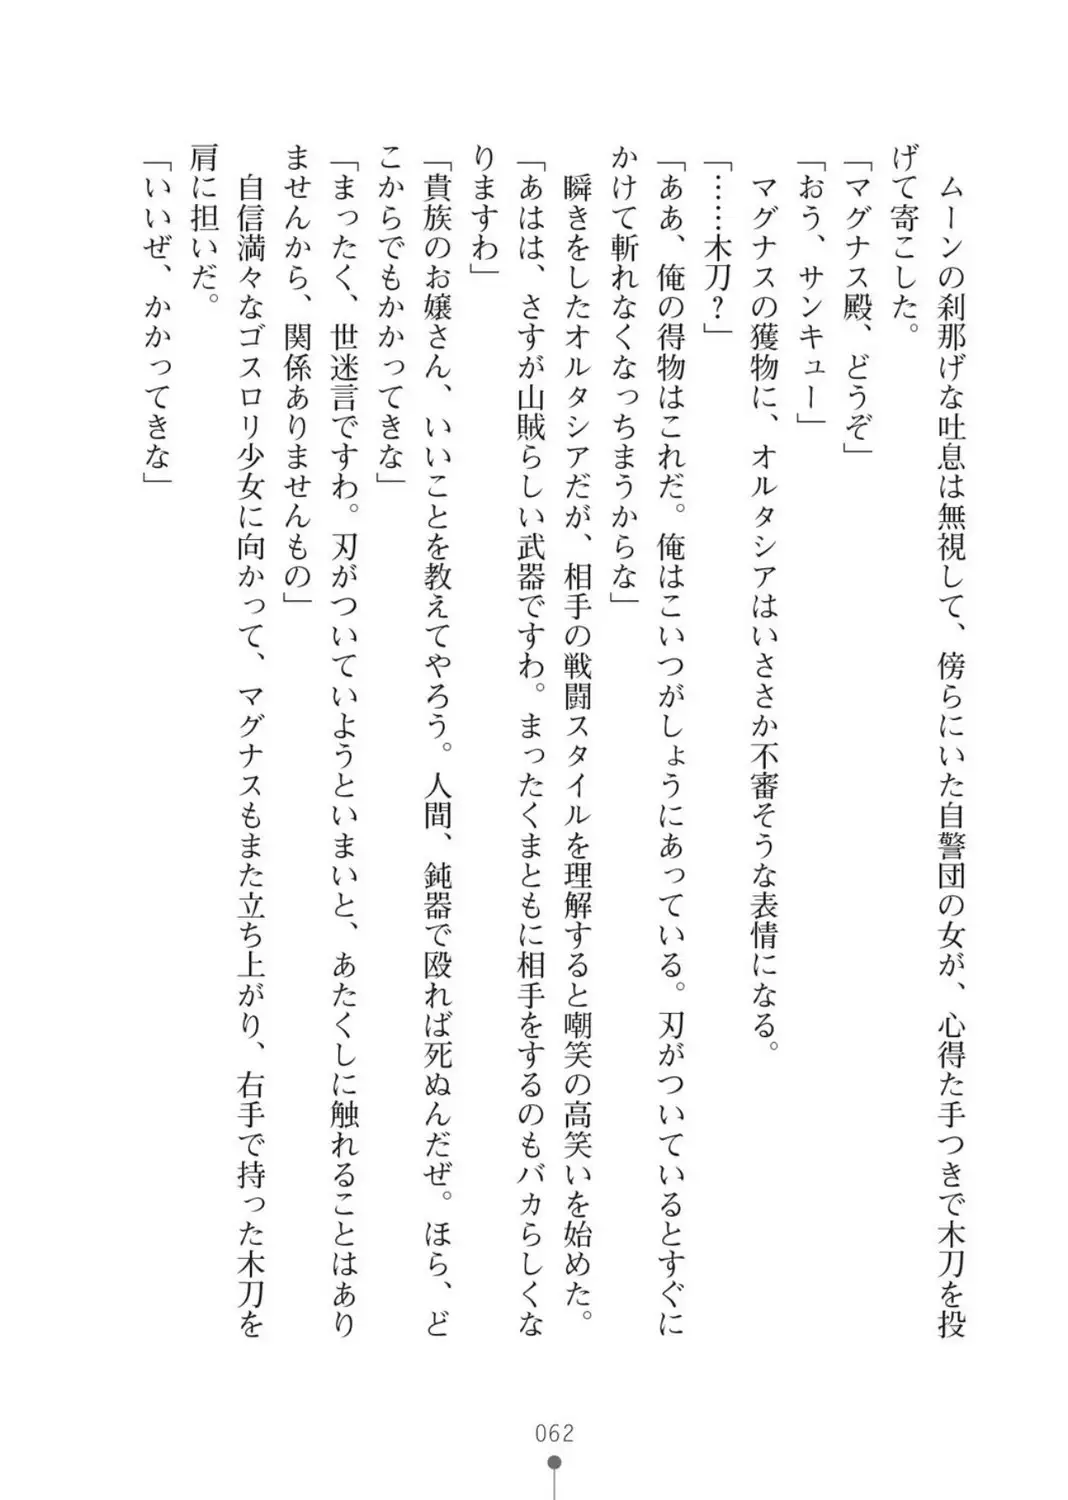 ムーンの刹那げな吐息は無視して、傍らにいた自警団の女が、心得た手つきで木刀を投
げて寄こした。
「マグナス殿、どうぞ」
「おう、サンキュー」
　マグナスの獲物に、オルタシアはいささか不審そうな表情になる。
「……木刀？」
「ああ、俺の得物はこれだ。俺はこいつがしょうにあっている。刃がついているとすぐに
かけて斬れなくなっちまうからな」
　瞬きをしたオルタシアだが、相手の戦闘スタイルを理解すると嘲笑の高笑いを始めた。
「あはは、さすが山賊らしい武器ですわ。まったくまともに相手をするのもバカらしくな
りますわ」
「貴族のお嬢さん、いいことを教えてやろう。人間、鈍器で殴れば死ぬんだぜ。ほら、ど
こからでもかかってきな」
「まったく、世迷言ですわ。刃がついていようといまいと、あたくしに触れることはあり
ませんから、関係ありませんもの」
　自信満々なゴスロリ少女に向かって、マグナスもまた立ち上がり、右手で持った木刀を
肩に担いだ。
「いいぜ、かかってきな」
062